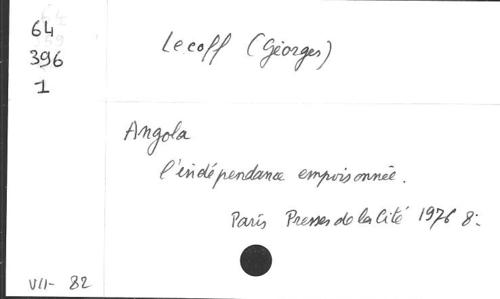 64
396
1
Lecoff (Géorges)
Angola
l'indépendance empoisonnée.
Paris Presses de la Cité 1976 8:
VII- 82